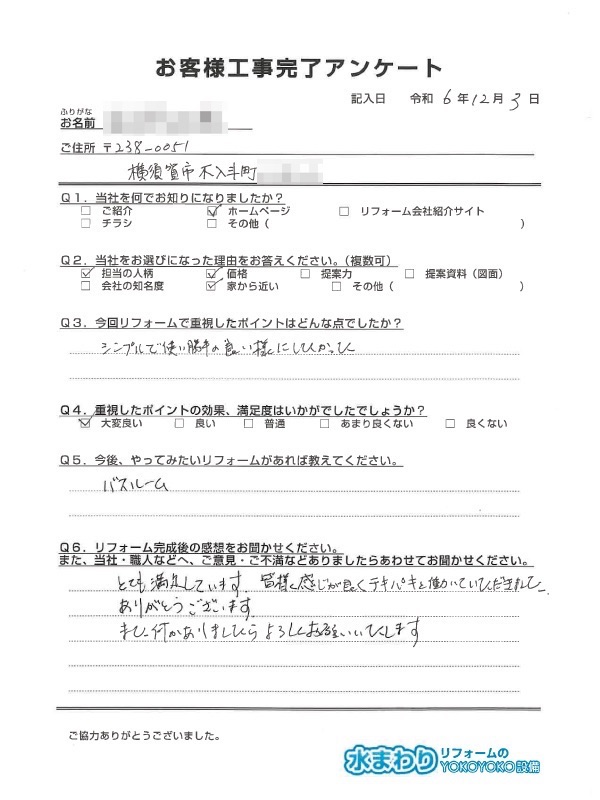 お客様工事完了アンケート
記入日 令和 6 年 12 月 3 日
ふりがな
お名前
ご住所 〒238-0051
横須賀市不入斗町
Q1．当社を何でお知りになりましたか？
□ ご紹介 ☑ ホームページ □ リフォーム会社紹介サイト
□ チラシ □ その他（ ）
Q2．当社をお選びになった理由をお答えください。（複数可）
☑ 担当の人柄 ☑ 価格 □ 提案力 □ 提案資料（図面）
□ 会社の知名度 ☑ 家から近い □ その他（ ）
Q3．今回リフォームで重視したポイントはどんな点でしたか？
シンプルで使い勝手の良い様にしたかった
Q4．重視したポイントの効果、満足度はいかがでしたでしょうか？
☑ 大変良い □ 良い □ 普通 □ あまり良くない □ 良くない
Q5．今後、やってみたいリフォームがあれば教えてください。
バスルーム
Q6．リフォーム完成後の感想をお聞かせください。
また、当社・職人などへ、ご意見・ご不満などありましたらあわせてお聞かせください。
とても満足しています。皆様、感じが良くテキパキと働いていただきまして、
ありがとうございます。
また何かありましたらよろしくお願いいたします
ご協力ありがとうございました。
水まわり リフォームの
YOKOYOKO設備